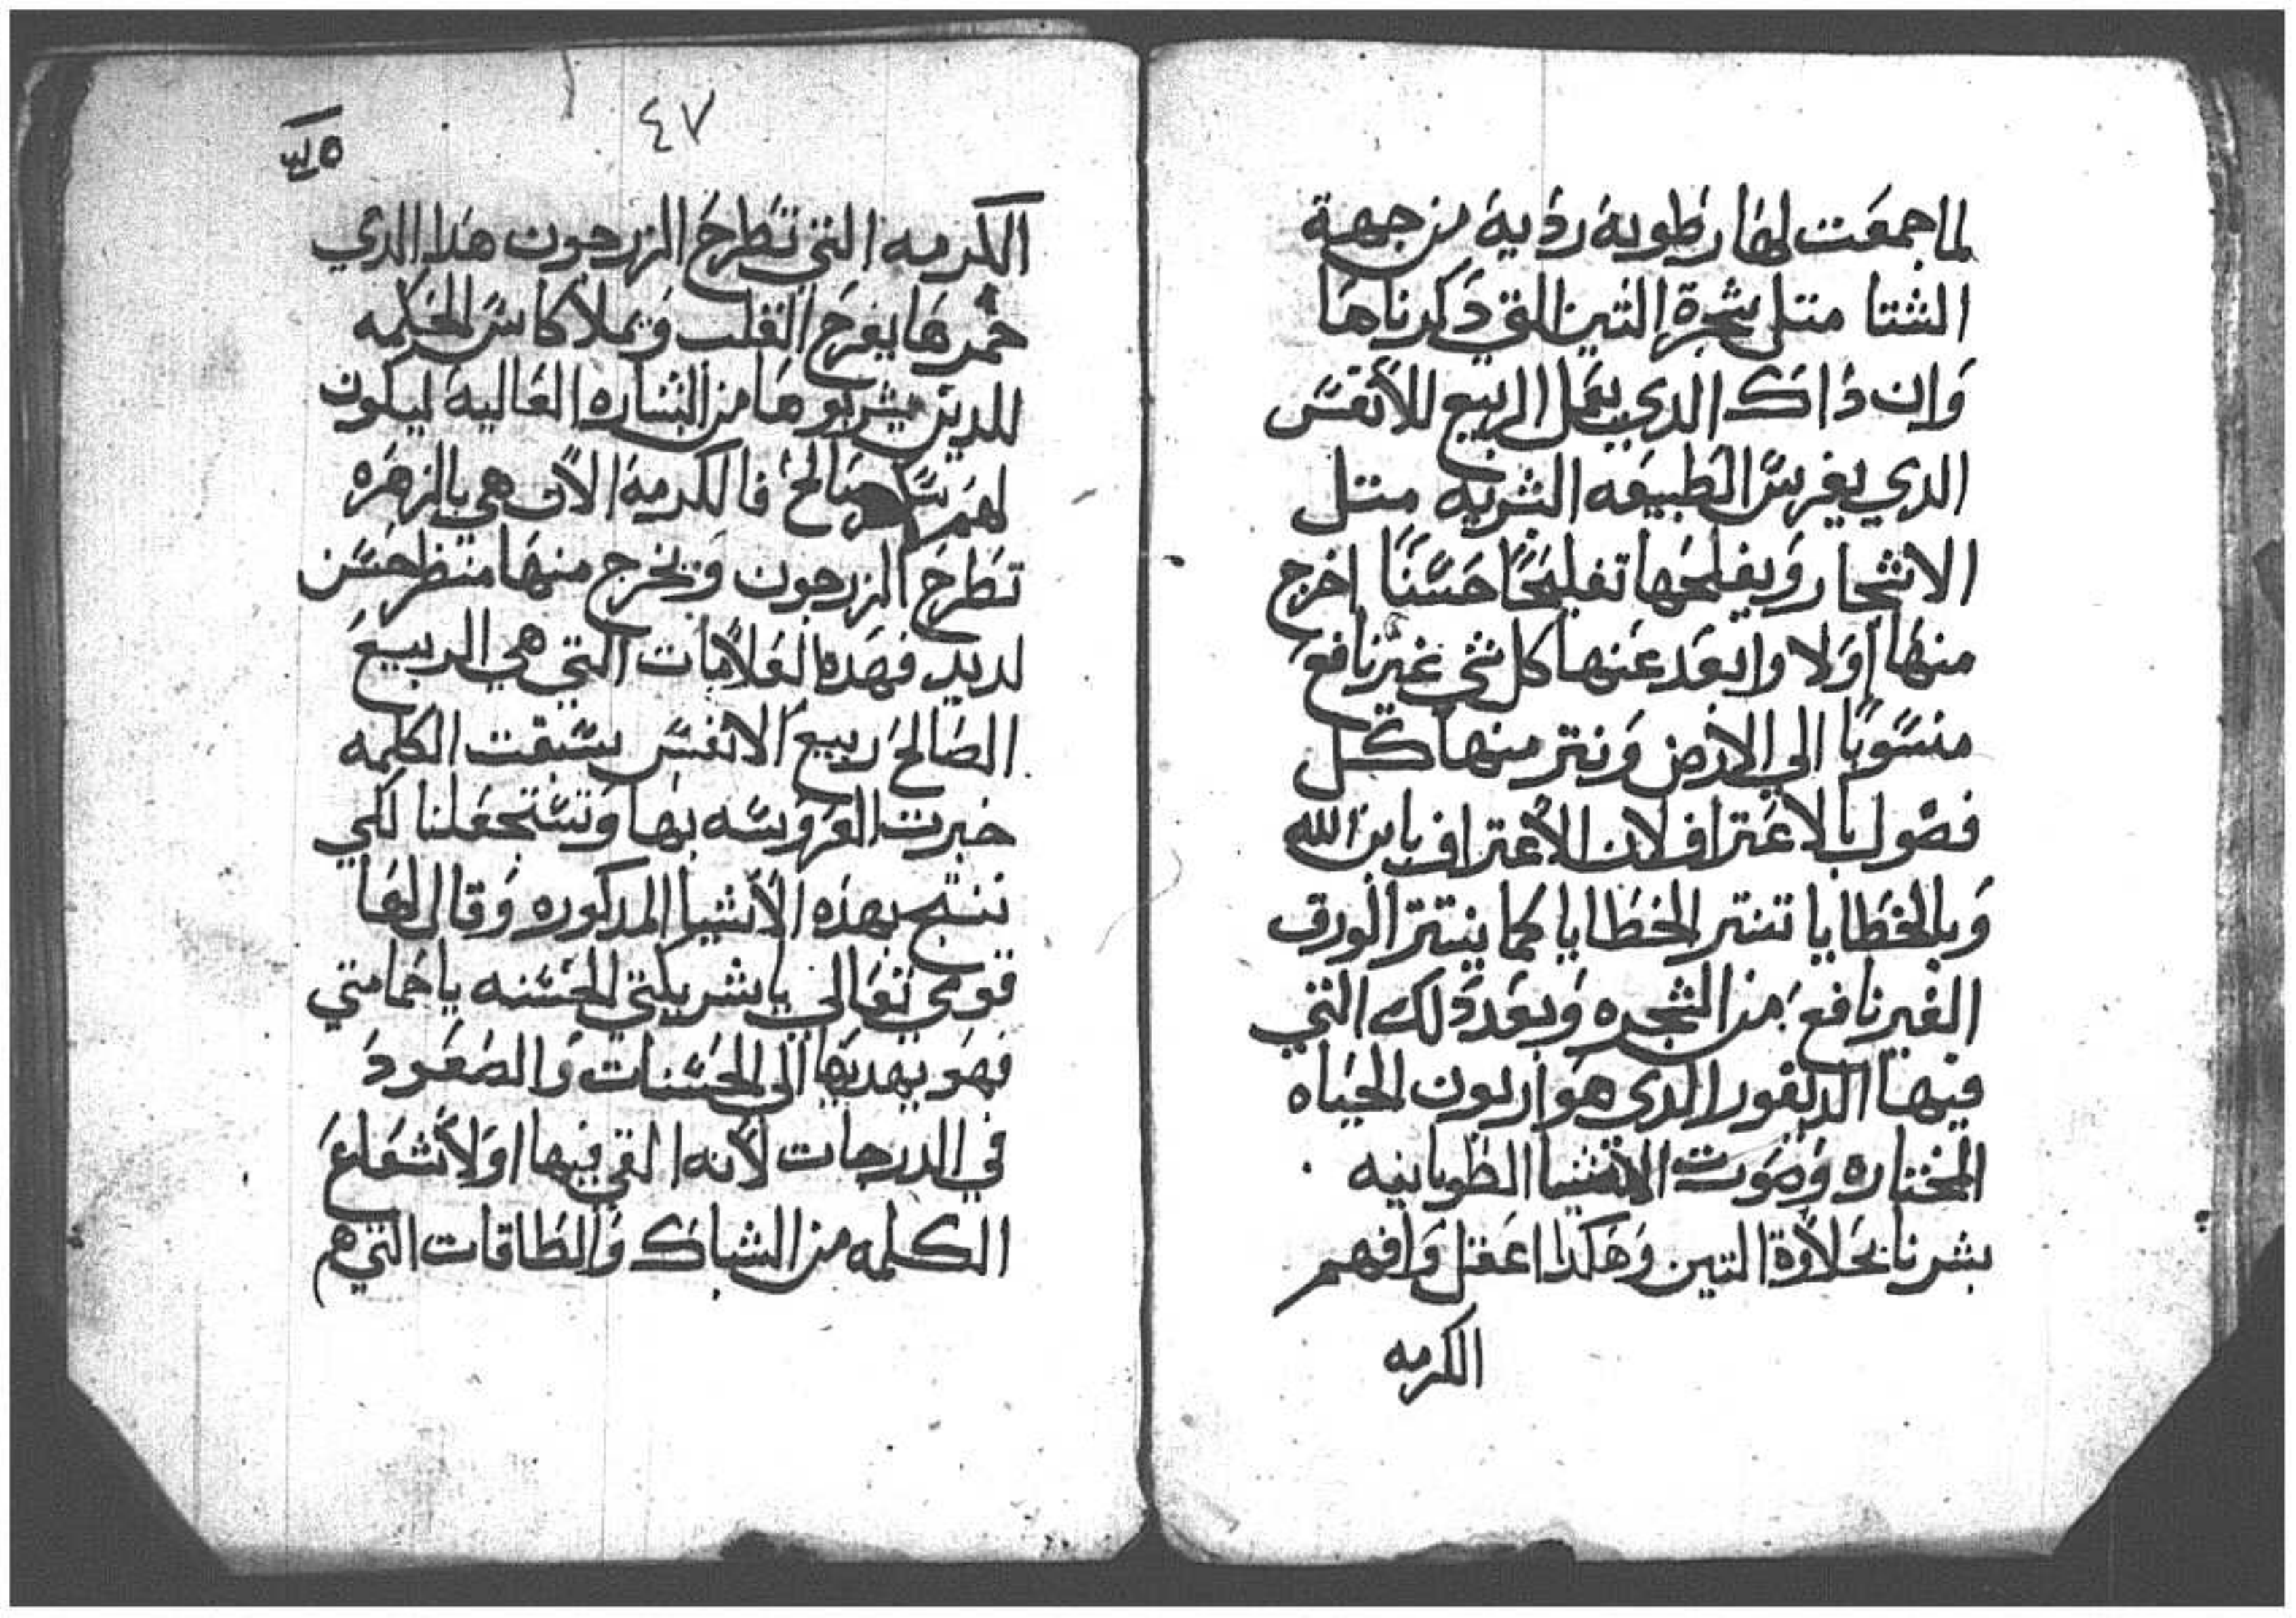 لما جمعت لها رطوبة ردية من جهة
الشتا متل شجرة التين التي دكرناها
وان داك الدي يعمل الربيع للأنفس
الدي يغرس الطبيعه البشريه متل
الاشجار ويفلحها تفليحًا حسنًا اخرج
منها اولا وابعد عنها كل شي غير نافع
منسوبًا الي الارض ونتر منها كل
فضول بالاعتراف لان الأعتراف بابن الله
وبالخطايا تنتر الخطايا كما ينتتر الورق
الغير نافع من الشجره وبعد دلك التي
فيها الديفور الدي هو اربون الحياه
المختاره وصوت الاشيا الطوبانيه
بشرنا بحلاوة التين وهكدا اعقل وافهم
الكرمه
٤٧
الكرمه التي تطرح الزرجون هدا الدي
خمرها يفرح القلب ويملا كاس الحكمه
للدين يشربوها من البشاره العاليه ليكون
لهم صالح فالكرمه الان هي بالزهره
تطرح الزرجون ويخرج منها منظر حسن
لديد فهده العلامات التي هي الربيع
الصالح ربيع الانفس سبقت الكلمه
خبرت العروسه بها وتستجعلنا لكي
ننتج بهده الأشيا المدكوره وقال لها
قومي تعالي يا شريكتي الحسنه يا حمامتي
فهو يهديها الى الحسنات والصعود
في الدرجات لأنه القي فيها اولا شعاع
الكلمه من الشباك والطاقات التي هم